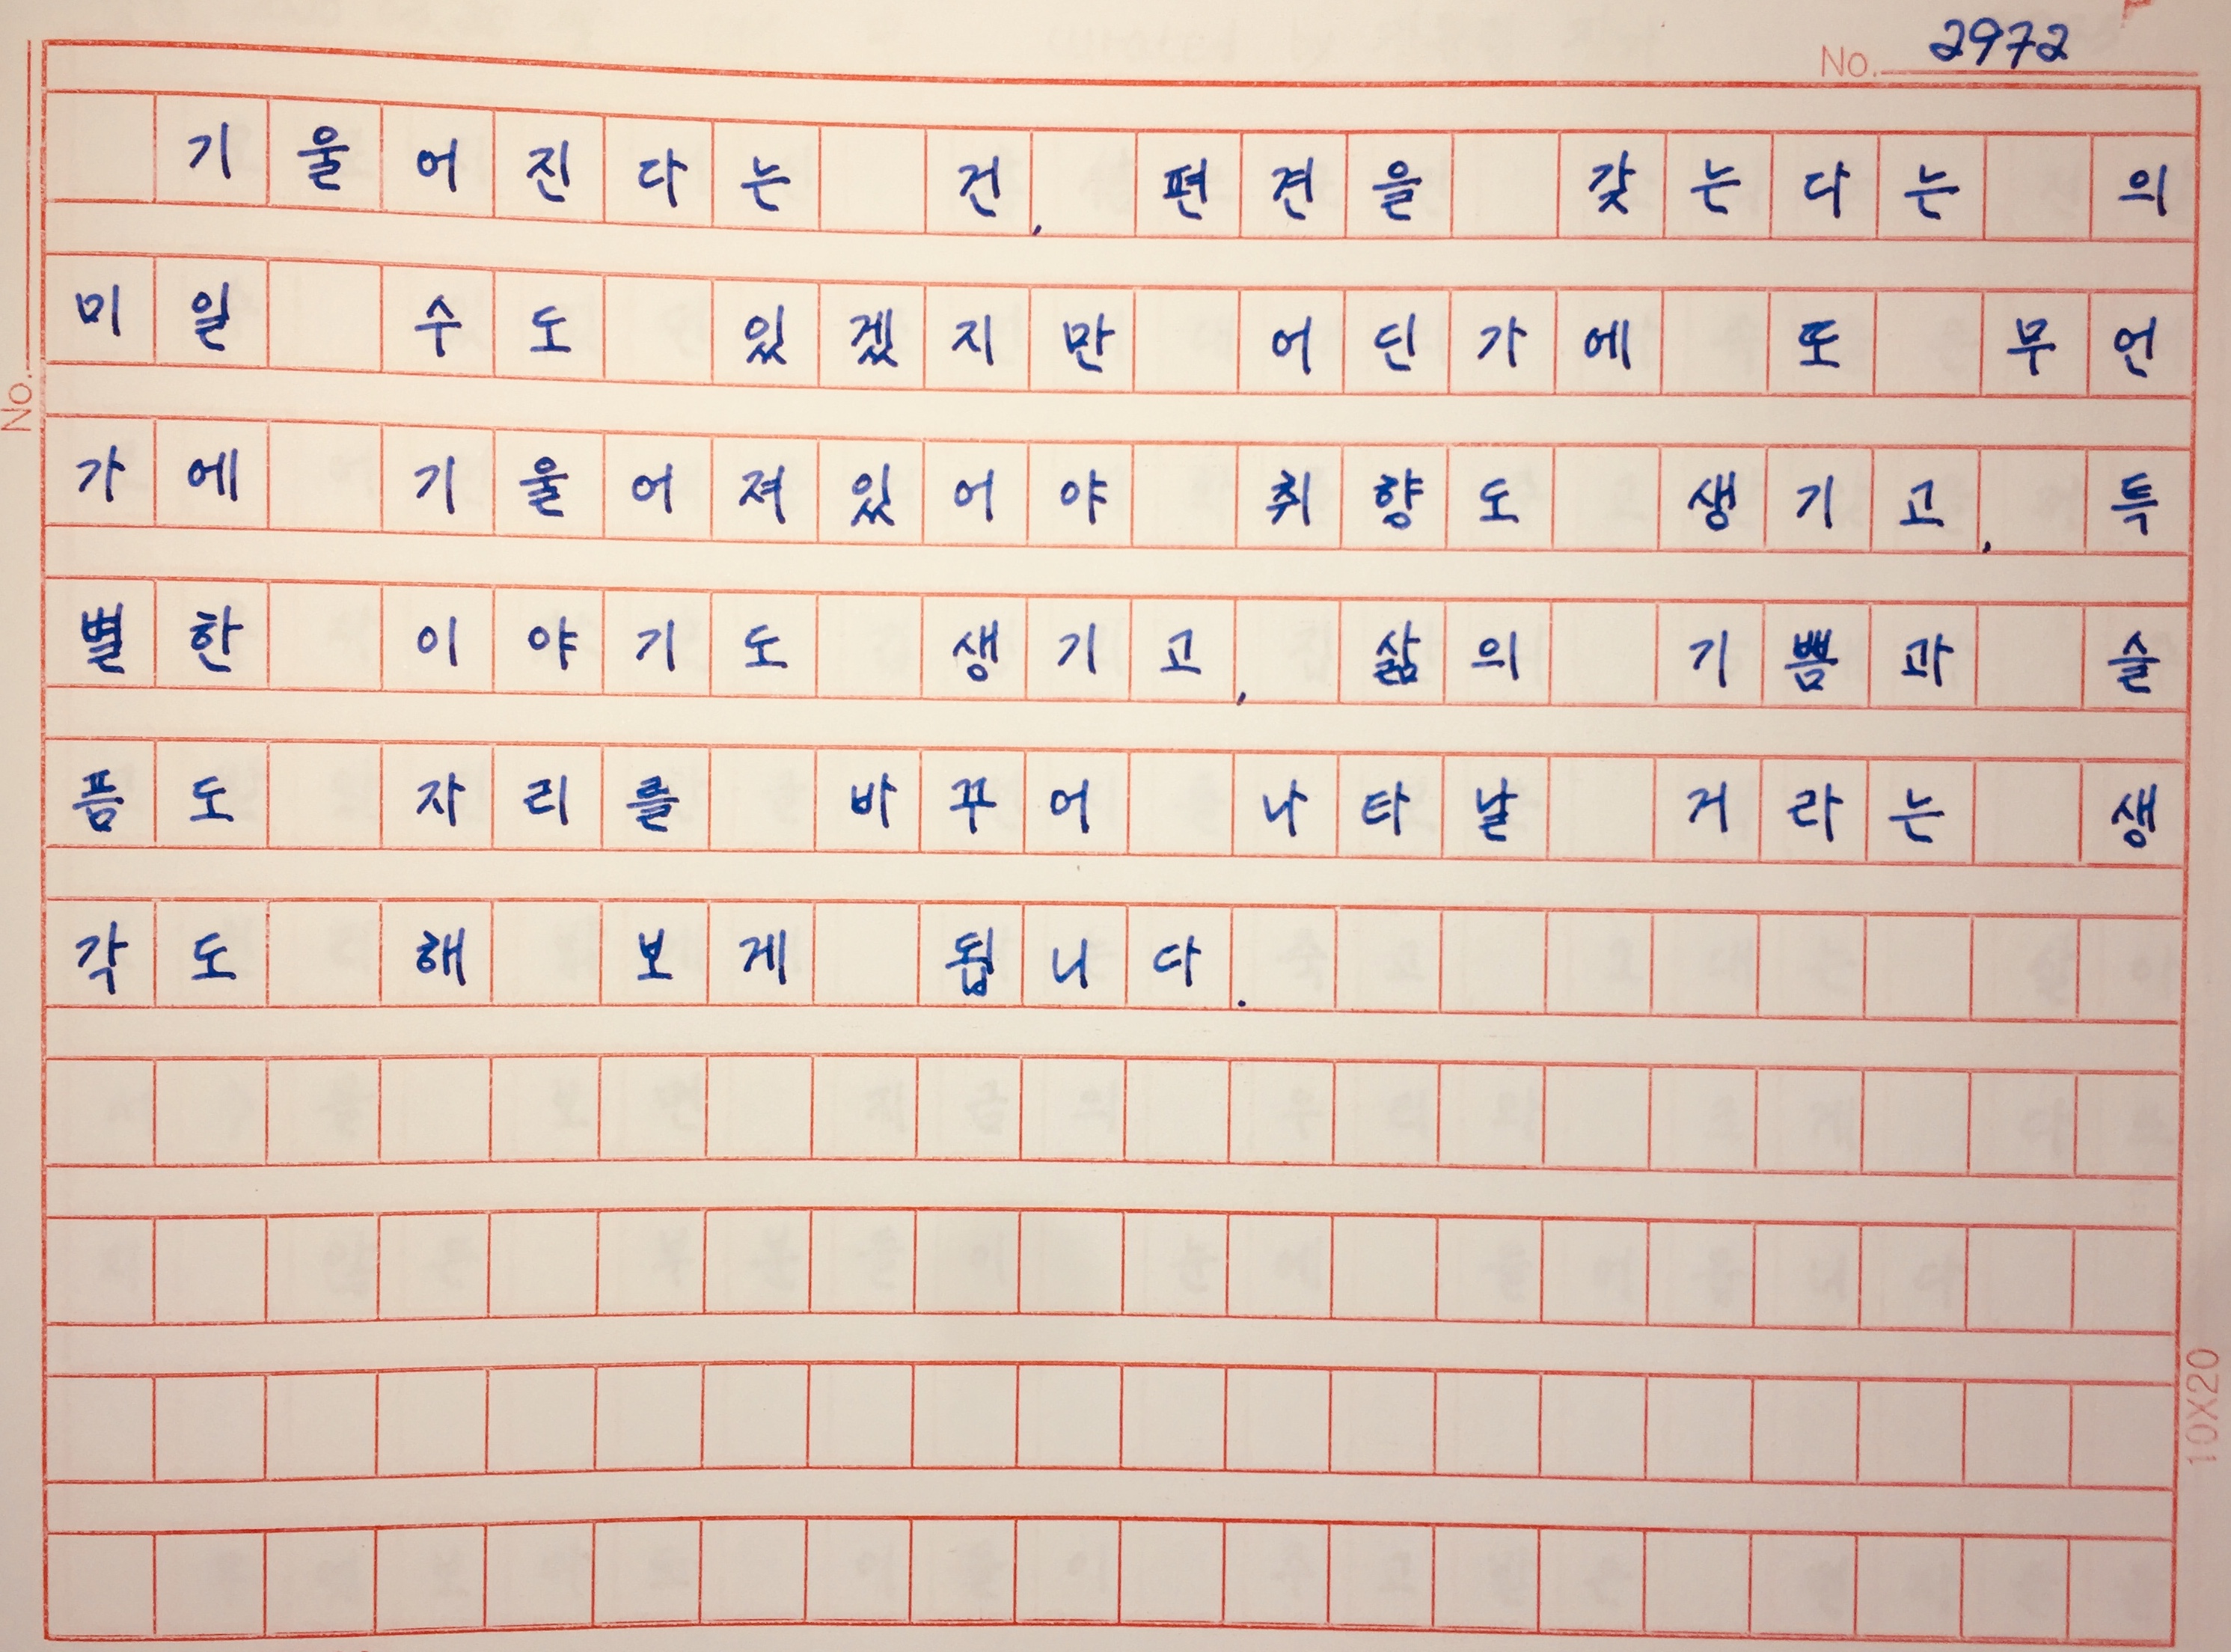 No. 2972
기울어진다는 건, 편견을 갖는다는 의
미일 수도 있겠지만 어딘가에 또 무언
가에 기울어져있어야 취향도 생기고, 특
별한 이야기도 생기고, 삶의 기쁨과 슬
픔도 자리를 바꾸어 나타날 거라는 생
각도 해 보게 됩니다.
No.
10X20